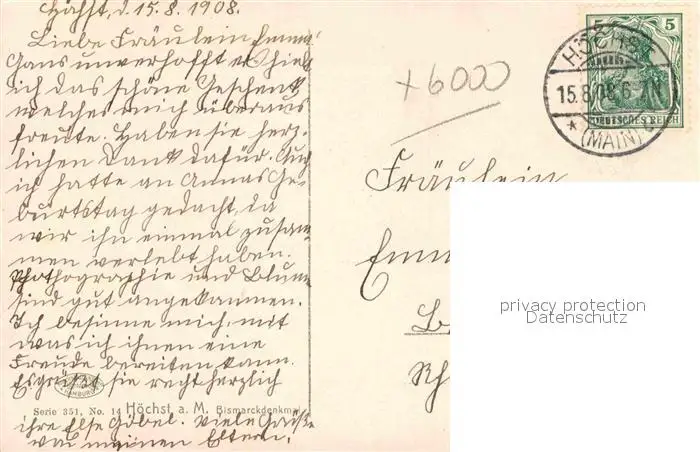 Höchst, d. 15.8.1908.
Liebe Fräulein Emmi!
Ganz unverhofft erhielt
ich das schöne Geschenk
welches mich überaus
freute. Haben sie herz-
lichen Dank dafür. Auch
ich hatte an Annas Ge-
burtstag gedacht, da
wir ihn einmal zusam-
men verlebt haben.
Phothographie und Blume
sind gut angekommen.
Ich besinne mich, mit
was ich ihnen eine
Freude bereiten kann.
Es grüßt sie recht herzlich
Serie 351, No. 14 Höchst a. M. Bismarckdenkmal
ihre Else Göbel. Viele Grüße
von meinen Eltern.
+6000
5 5
DEUTSCHES REICH
HÖCHST
15.8.08.6-7N
* (MAIN)
Fräulein
Emm
Rh
privacy protection
Datenschutz